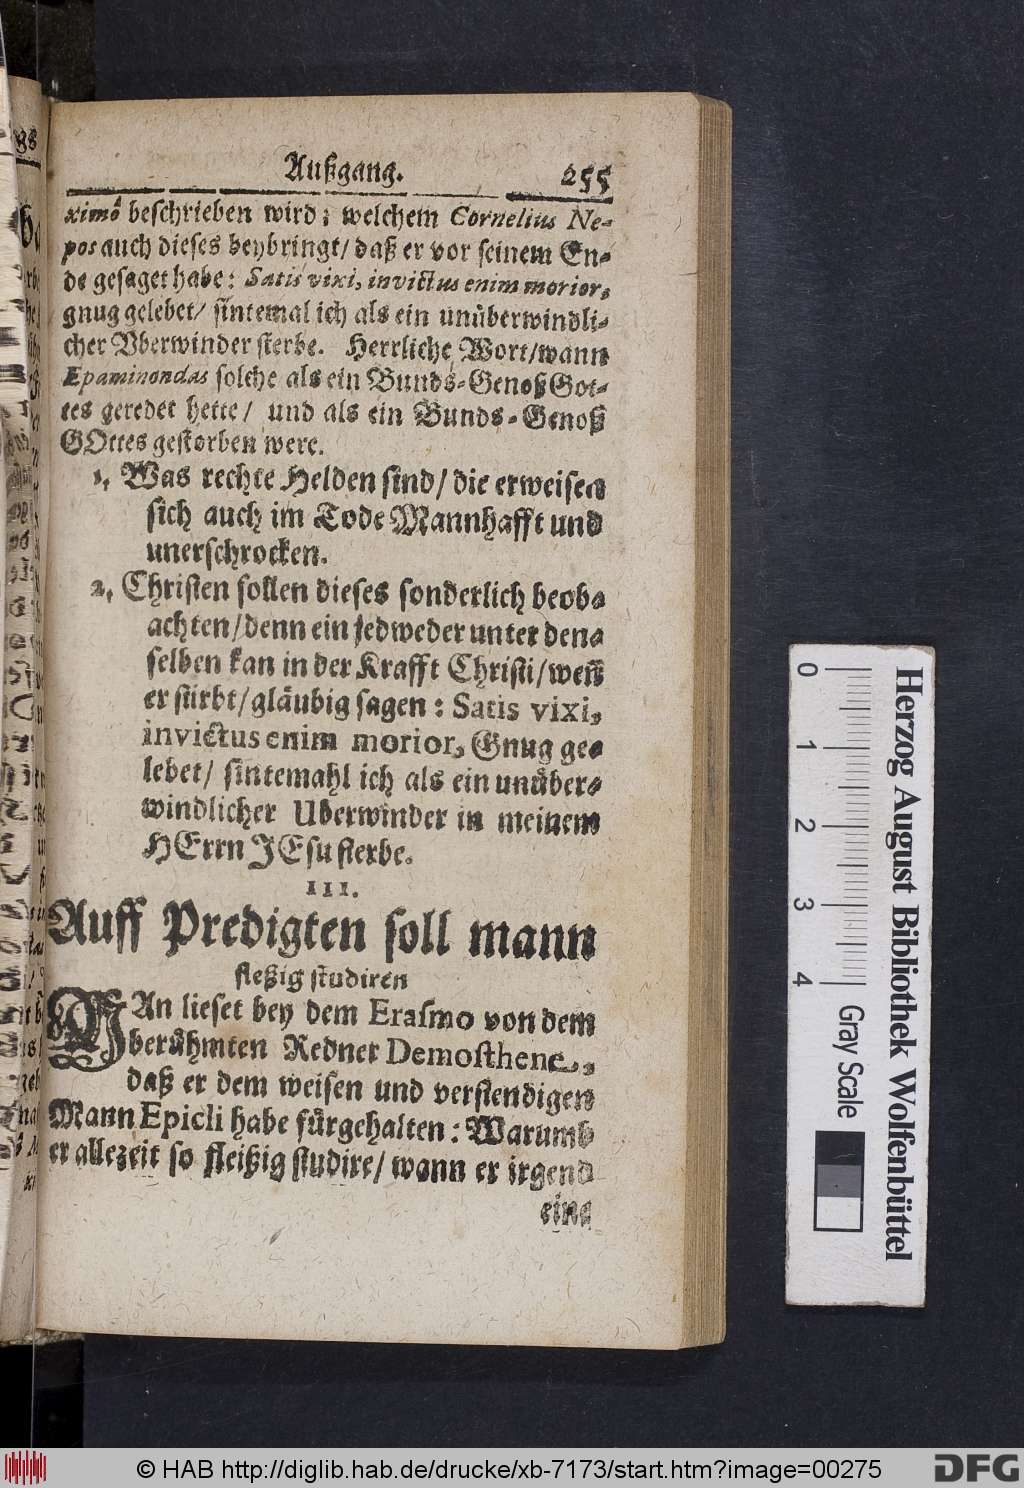 Außgang. 255
ximô beschrieben wird; welchem Cornelius Ne-
pos auch dieses beybringt/ daß er vor seinem En-
de gesaget habe: Satis vixi, invictus enim morior,
gnug gelebet/ sintemal ich als ein unüberwindli-
cher Vberwinder sterbe. Herrliche Wort/wann
Epaminondas solche als ein Bunds-Genoß Got-
tes geredet hette/ und als ein Bunds-Genoß
GOttes gestorben were.
1. Was rechte Helden sind/ die erweisen
sich auch im Tode Mannhafft und
unerschrocken.
2. Christen sollen dieses sonderlich beob-
achten/denn ein jedweder unter den-
selben kan in der Krafft Christi/weñ
er stirbt/gläubig sagen: Satis vixi,
invictus enim morior, Gnug ge-
lebet/ sintemahl ich als ein unüber-
windlicher Uberwinder in meinem
HErrn JEsu sterbe.
III.
Auff Predigten soll mann
fleßig studiren
MAn lieset bey dem Erasmo von dem
berühmten Redner Demosthene,
daß er dem weisen und verstendigen
Mann Epicli habe fürgehalten: Warumb
er allezeit so fleißig studire/ wann er irgend
eine
Herzog August Bibliothek Wolfenbüttel
0 1 2 3 4 Gray Scale
© HAB http://diglib.hab.de/drucke/xb-7173/start.htm?image=00275
DFG